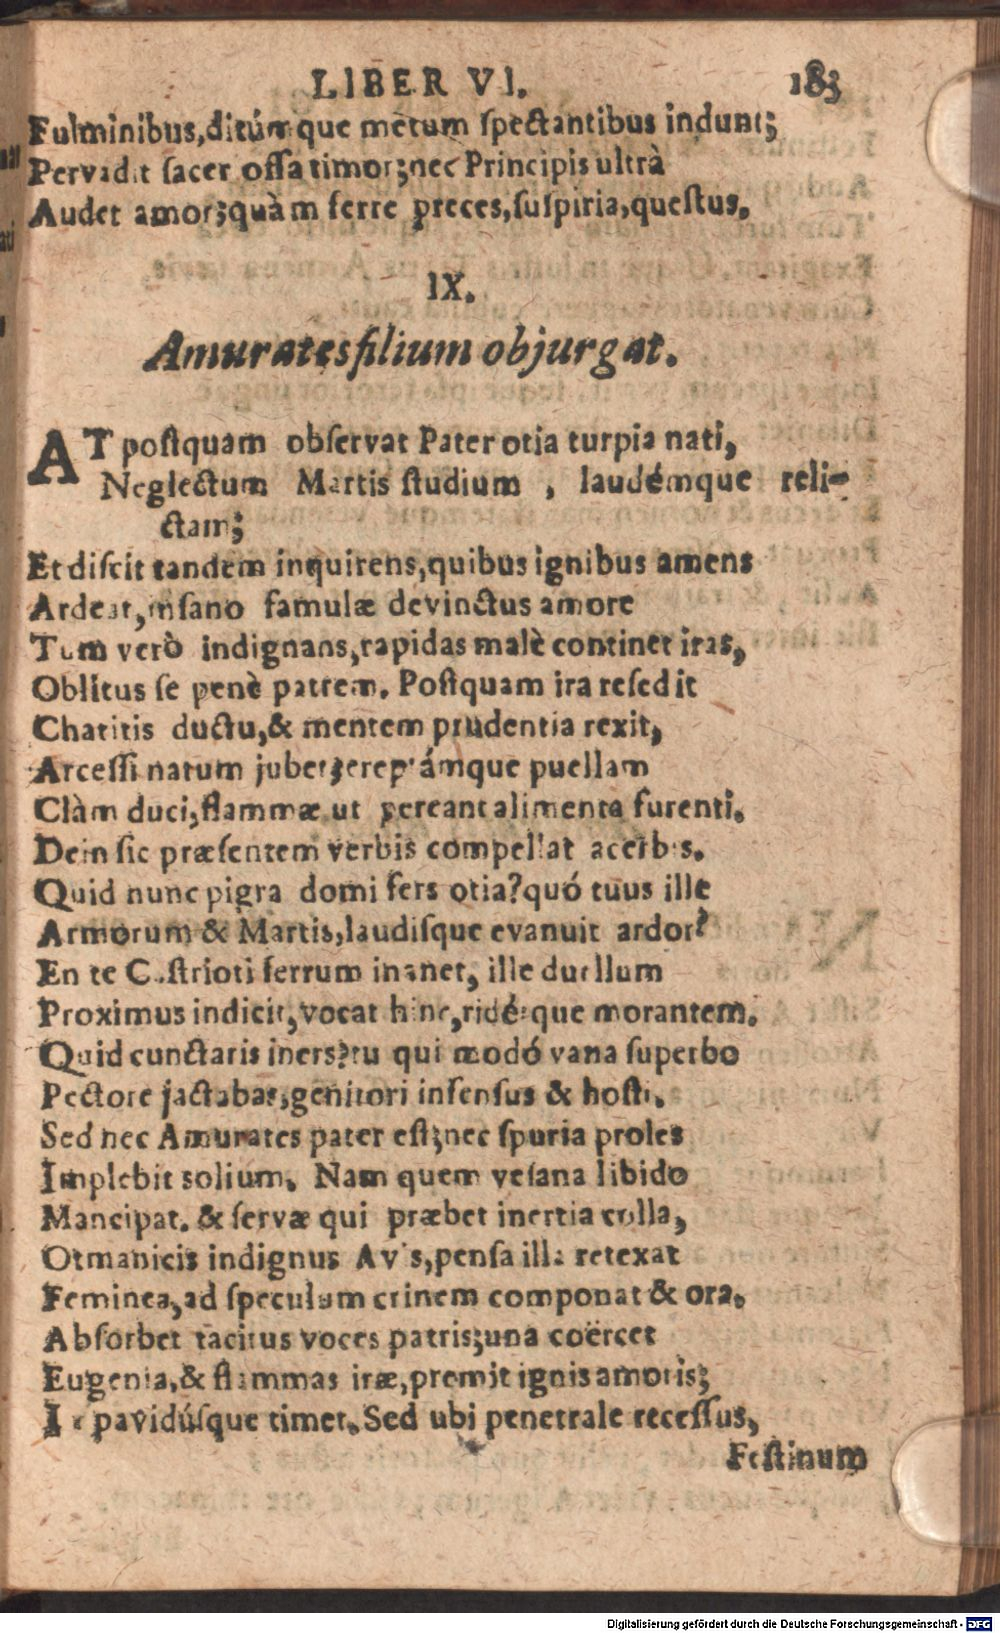 LIBER VI. 183
Fulminibus,ditúmque metum spectantibus indunt;
Pervadit sacer ossa timor;nec Principis ultrà
Audet amor;quàm ferre preces,suspiria,questus.
IX.
Amurates filium objurgat.
AT postquam observat Pater otia turpia nati,
Neglectum Martis studium , laudémque reli-
ctam;
Et discit tandem inquirens,quibus ignibus amens
Ardeat,insano famulæ devinctus amore
Tum verò indignans,rapidas malè continet iras,
Oblitus se penè patrem. Postquam ira resedit
Charitis ductu,& mentem prudentia rexit,
Arcessi natum jubet;ereptámque puellam
Clàm duci,flammæ ut pereant alimenta furenti.
Dein sic præsentem verbis compellat acerbis.
Quid nunc pigra domi fers otia?quó tuus ille
Armorum & Martis,laudisque evanuit ardor?
En te Castrioti ferrum manet, ille duellum
Proximus indicit,vocat hinc,ridétque morantem.
Quid cunctaris iners?tu qui modó vana superbo
Pectore jactabas,genitori infensus & hosti.
Sed nec Amurates pater est;nec spuria proles
Implebit solium. Nam quem vesana libido
Mancipat. & servæ qui præbet inertia colla,
Otmanicis indignus Avis,pensa illa retexat
Feminea,ad speculum crinem componat & ora.
Absorbet tacitus voces patris;una coërcet
Eugenia,& flammas iræ,premit ignis amoris;
It pavidúsque timet.Sed ubi penetrale recessus,
Festinum
Digitalisierung gefördert durch die Deutsche Forschungsgemeinschaft - DFG